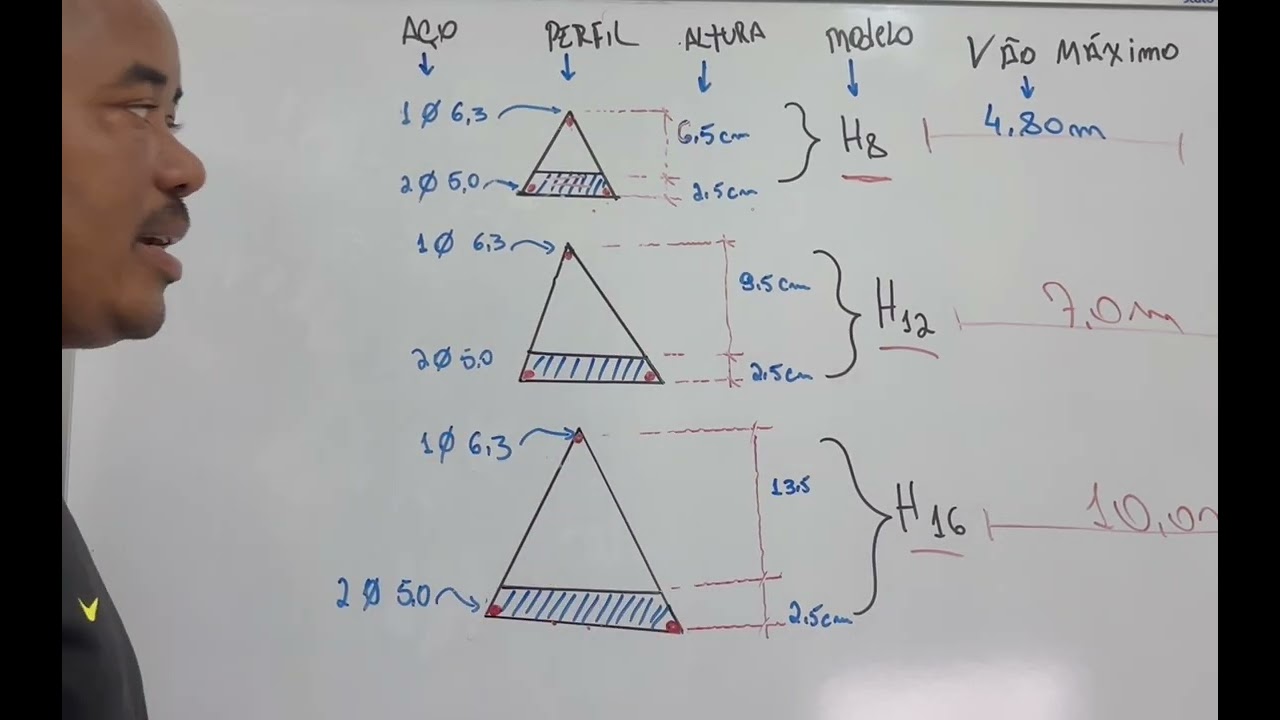 AÇO PERFIL ALTURA modelo VÃO MÁXIMO
1 Ø 6,3 6,5cm H8 4,80m
2 Ø 5,0 2,5cm
1 Ø 6,3 9,5cm H12 7,0m
2 Ø 5,0 2,5cm
1 Ø 6,3 13,5 H16 10,0m
2 Ø 5,0 2,5cm